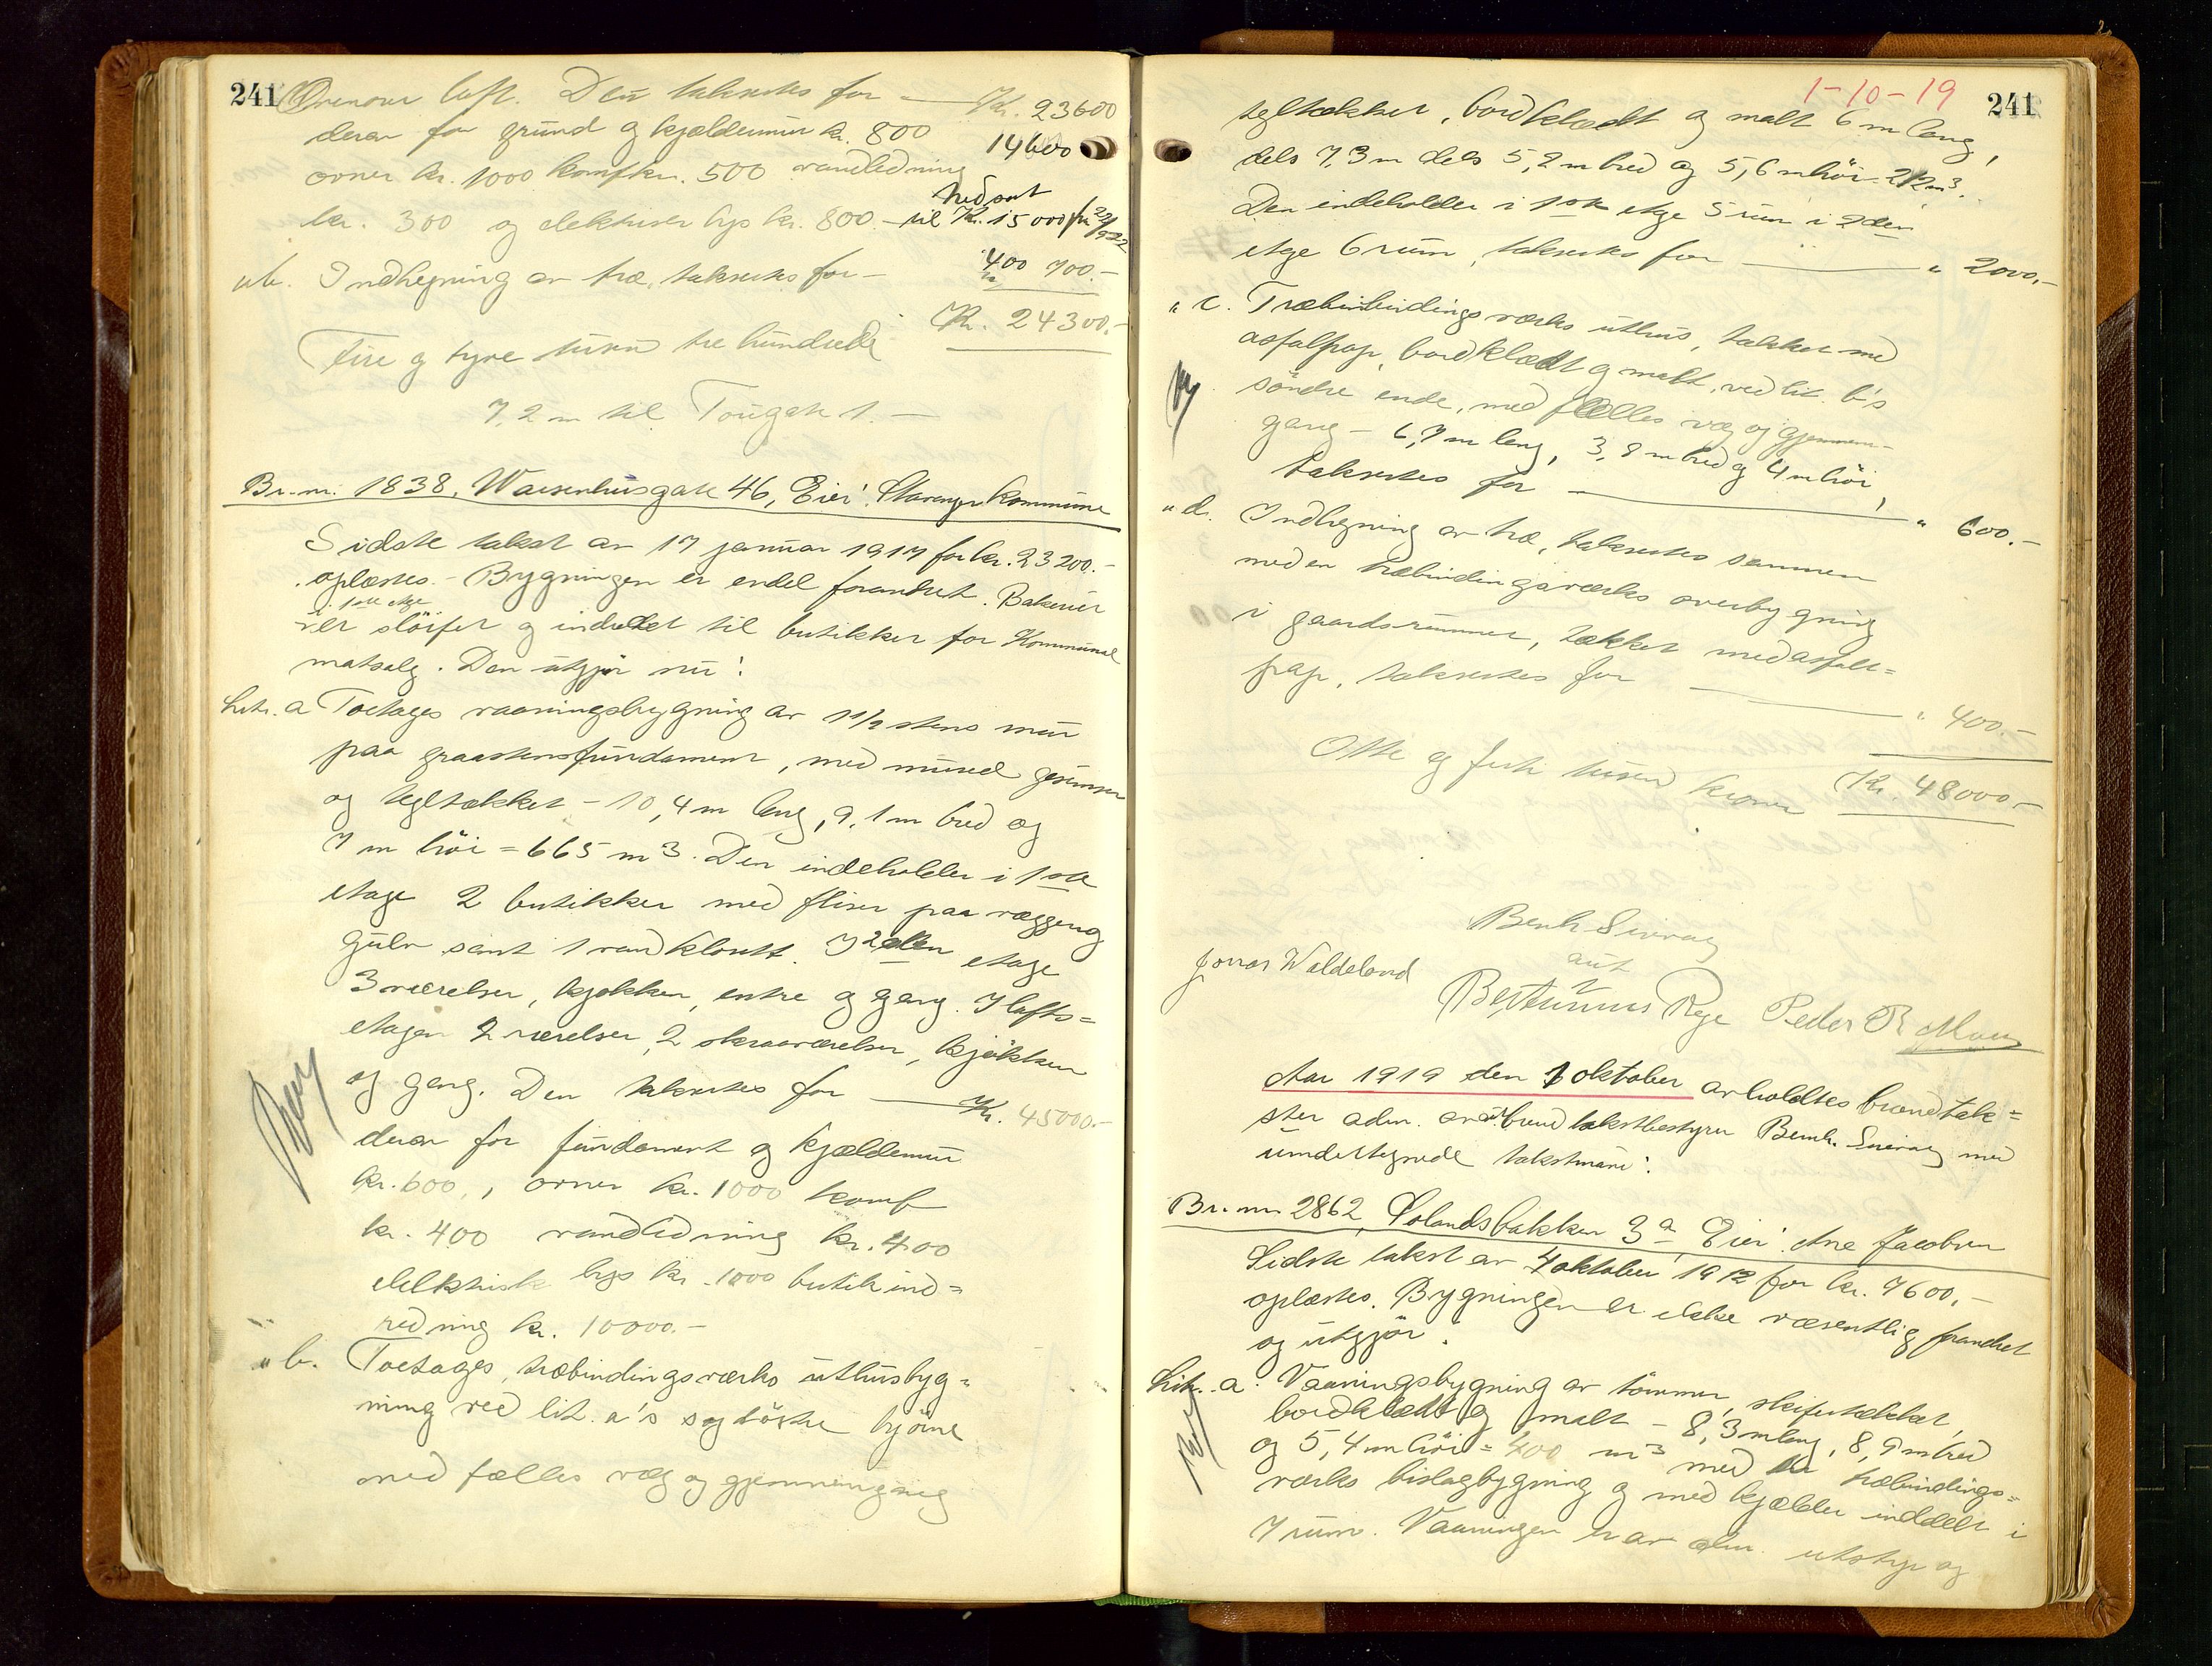 241
Ovenover loft. Den taksertes for — Kr. 23600
derav for grund og kjældermur kr. 800 14600
ovner kr. 1000 komfkr. 500 vandledning
nedsat
kr. 300 og elektriser lys kr. 800.- til Kr. 15000 fra 22/9-22
" b. Indhegning av træ, taksertes for — 400 700.-
Kr. 24300.-
Fire og tyve tusen tre hundrede
7,2 m til Tougate 1. —
Br.nr. 1838, Waisenhusgate 46, Eier: Stavanger kommune
Sidste takst av 17 januar 1917 for kr. 23200.-
oplæstes. - Bygningen er endel forandret. Bakeriet
i 1ste etge
er sløifet og indredet til butikker for Kommunal
matsalg. Den utgjør nu:
Litr. a Toetages vaaningsbygning av 1 1/2 stens mur
paa graastensfundament, med muret gesimser
og tegltækket - 10,4 m lang, 9,1 m bred og
7 m høi = 665 m3. Den indeholder i 1ste
etage 2 butikker med fliser paa væggeng
gulv samt 1 vandklosett. I 2den etage
3 værelser, kjøkken, entre og gang. I lofts=
etagen 2 værelser, 2 skraaværelser, kjøkken
og gang. Den taksertes for — Kr. 45000.-
derav for fundament og kjældermur
kr. 600, ovner kr. 1000 komf
kr. 400 vandledning kr. 400
elektrisk lys kr. 1000 butikind=
redning kr. 10000.-
" b. Toetages, træbindingsverks uthusbyg=
ning ved lit. a's sydøstre hjørne
med fælles væg og gjennemgang
1-10-19
241
tegltækket, bordklædt og malt 6 m lang,
dels 7,3 m dels 5,2 m bred og 5,6 m høi = 212 m3.
Den indeholder i 1ste etge 5 rum i 2den
etge 6 rum, taksertes for — " 2000.-
" c. Træbindingsværks uthus, tækket med
asfaltpap, bordklædt og malt, ved lit. b's
søndre ende, med fælles væg og gjennem-
gang - 6,7 m lang, 3,8 m bred og 4 m høi,
taksertes for — " 600.-
" d. Indhegning av træ, taksertes sammen
med en træbindingsværks overbygning
i gaardsrummet, tækket med asfalt=
pap, taksertes for — " 400.-
Otte og førti tusen kroner Kr. 48000.-
Bernh Sivrag
aut
Jonas Waldeland
Bertinius Rege Peder B
Aar 1919 den 1 oktober avholdtes brandtak=
ster adm. av aut. brandtakstbestyrer Bernh. Sivrag med
undertegnede takstmænd:
Br.nr. 2862, Solandsbakken 3a Eier: Ane Jacobsen
Sidste takst av 4 oktober 1912 for kr. 7600.-
oplæstes. Bygningen er ikke væsentlig forandret
og utgjør:
Litr. a. Vaaningsbygning av tømmer, skifertækket,
bordklædt og malt - 8,3 m lang, 8,9 m bred
og 5,4 m høi = 400 m3 med træbindings=
værks bislagbygning og med kjælder inddelt i
7 rum. Vaaningen har alm. utstyr og